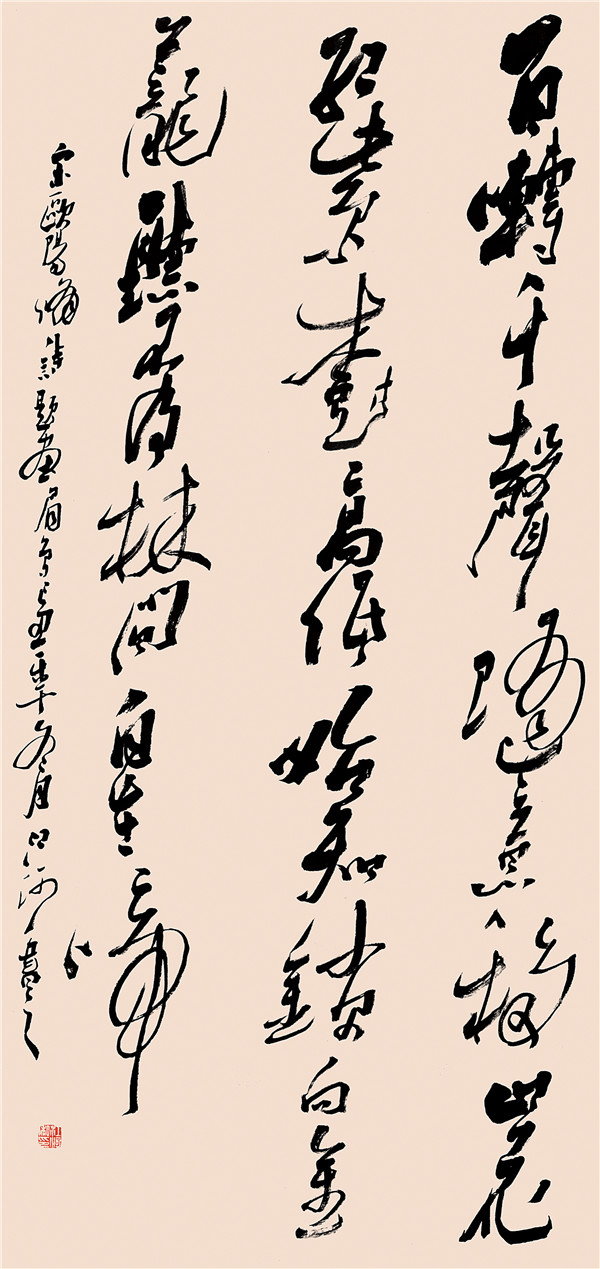 百囀千聲隨意移山花
紅紫樹高低始知鎖向金
籠聽不及林間自在啼
宋歐陽修詩題畫眉鳥丑年冬月河書之